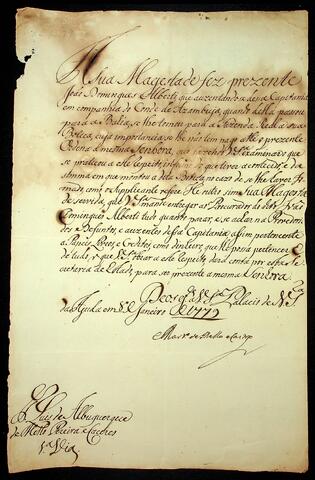 A Sua Magestade fez prezente
João Dominguez Alberti, que auzentandose dessa Capitania
em companhia do Conde de Azambuja, quando della passou
para a Bahia, se lhe tomou para a Fazenda Real a sua
Botica, cuja importancia se lhe não tem pago
Ordena a mesma Senhora, que V. S.ª examinando o que
se praticou a este respeito
summa em que montou a dita Botica; no cazo de se lhe haver to-
mado, como o Supplicante refere: He outro sim Sua Magesta-
de servida, que V. S.ª mande entregar ao Procurador do dito João
Domingues Alberti tudo quanto parar, e se achar na Provedoria
dos Defuntos, e auzentes dessa Capitania, assim pertencente
a Papeis, Livros, e Creditos, como dinheiro, que lhe possa pertencer: E
de tudo, o que V. S.ª obrar a este respeito, dará conta por esta Se-
cretaria de Estado, para ser prezente a mesma Senhora.
Deos g.de a V. S.ª Palacio de N. S.ra
da Ajuda em de Janeiro de 1779
Mart.º de Mello e Castro
S.r Luis de Albuquerque
de Mello Pereira e Caceres